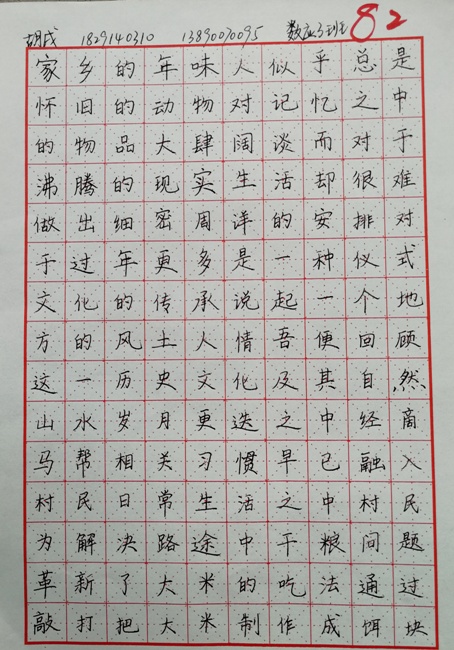 胡戌 1829140310 13890070095 数应3班 82
家乡的年味人似乎总是
怀旧的动物对记忆之中
的物品大肆阔谈而对于
沸腾的现实生活却很难
做出细密周详的安排对
于过年更多是一种仪式
文化的传承说起一个地
方的风土人情吾便回顾
这一历史文化及其自然
山水岁月更迭之中经商
马帮相关习惯早已融入
村民日常生活之中村民
为解决路途中干粮问题
革新了大米的吃法通过
敲打把大米制作成饵块